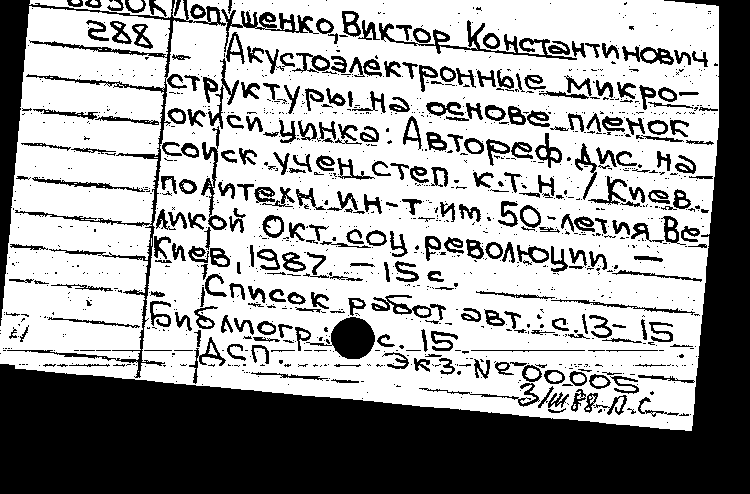 Лопушенко, Виктор Константинович.
288
Акустоэлектронные микро-
структуры на основе пленок
окиси цинка: Автореф. дис. на
соиск. учен. степ. к.т.н. / Киев.
политехн. ин-т им. 50-летия Ве-
ликой Окт. соц. революции. —
Киев, 1987. - 15 с.
Список работ авт.: с. 13-15
Библиогр.: с. 15
ДСП. экз. № 00005
3/III 88